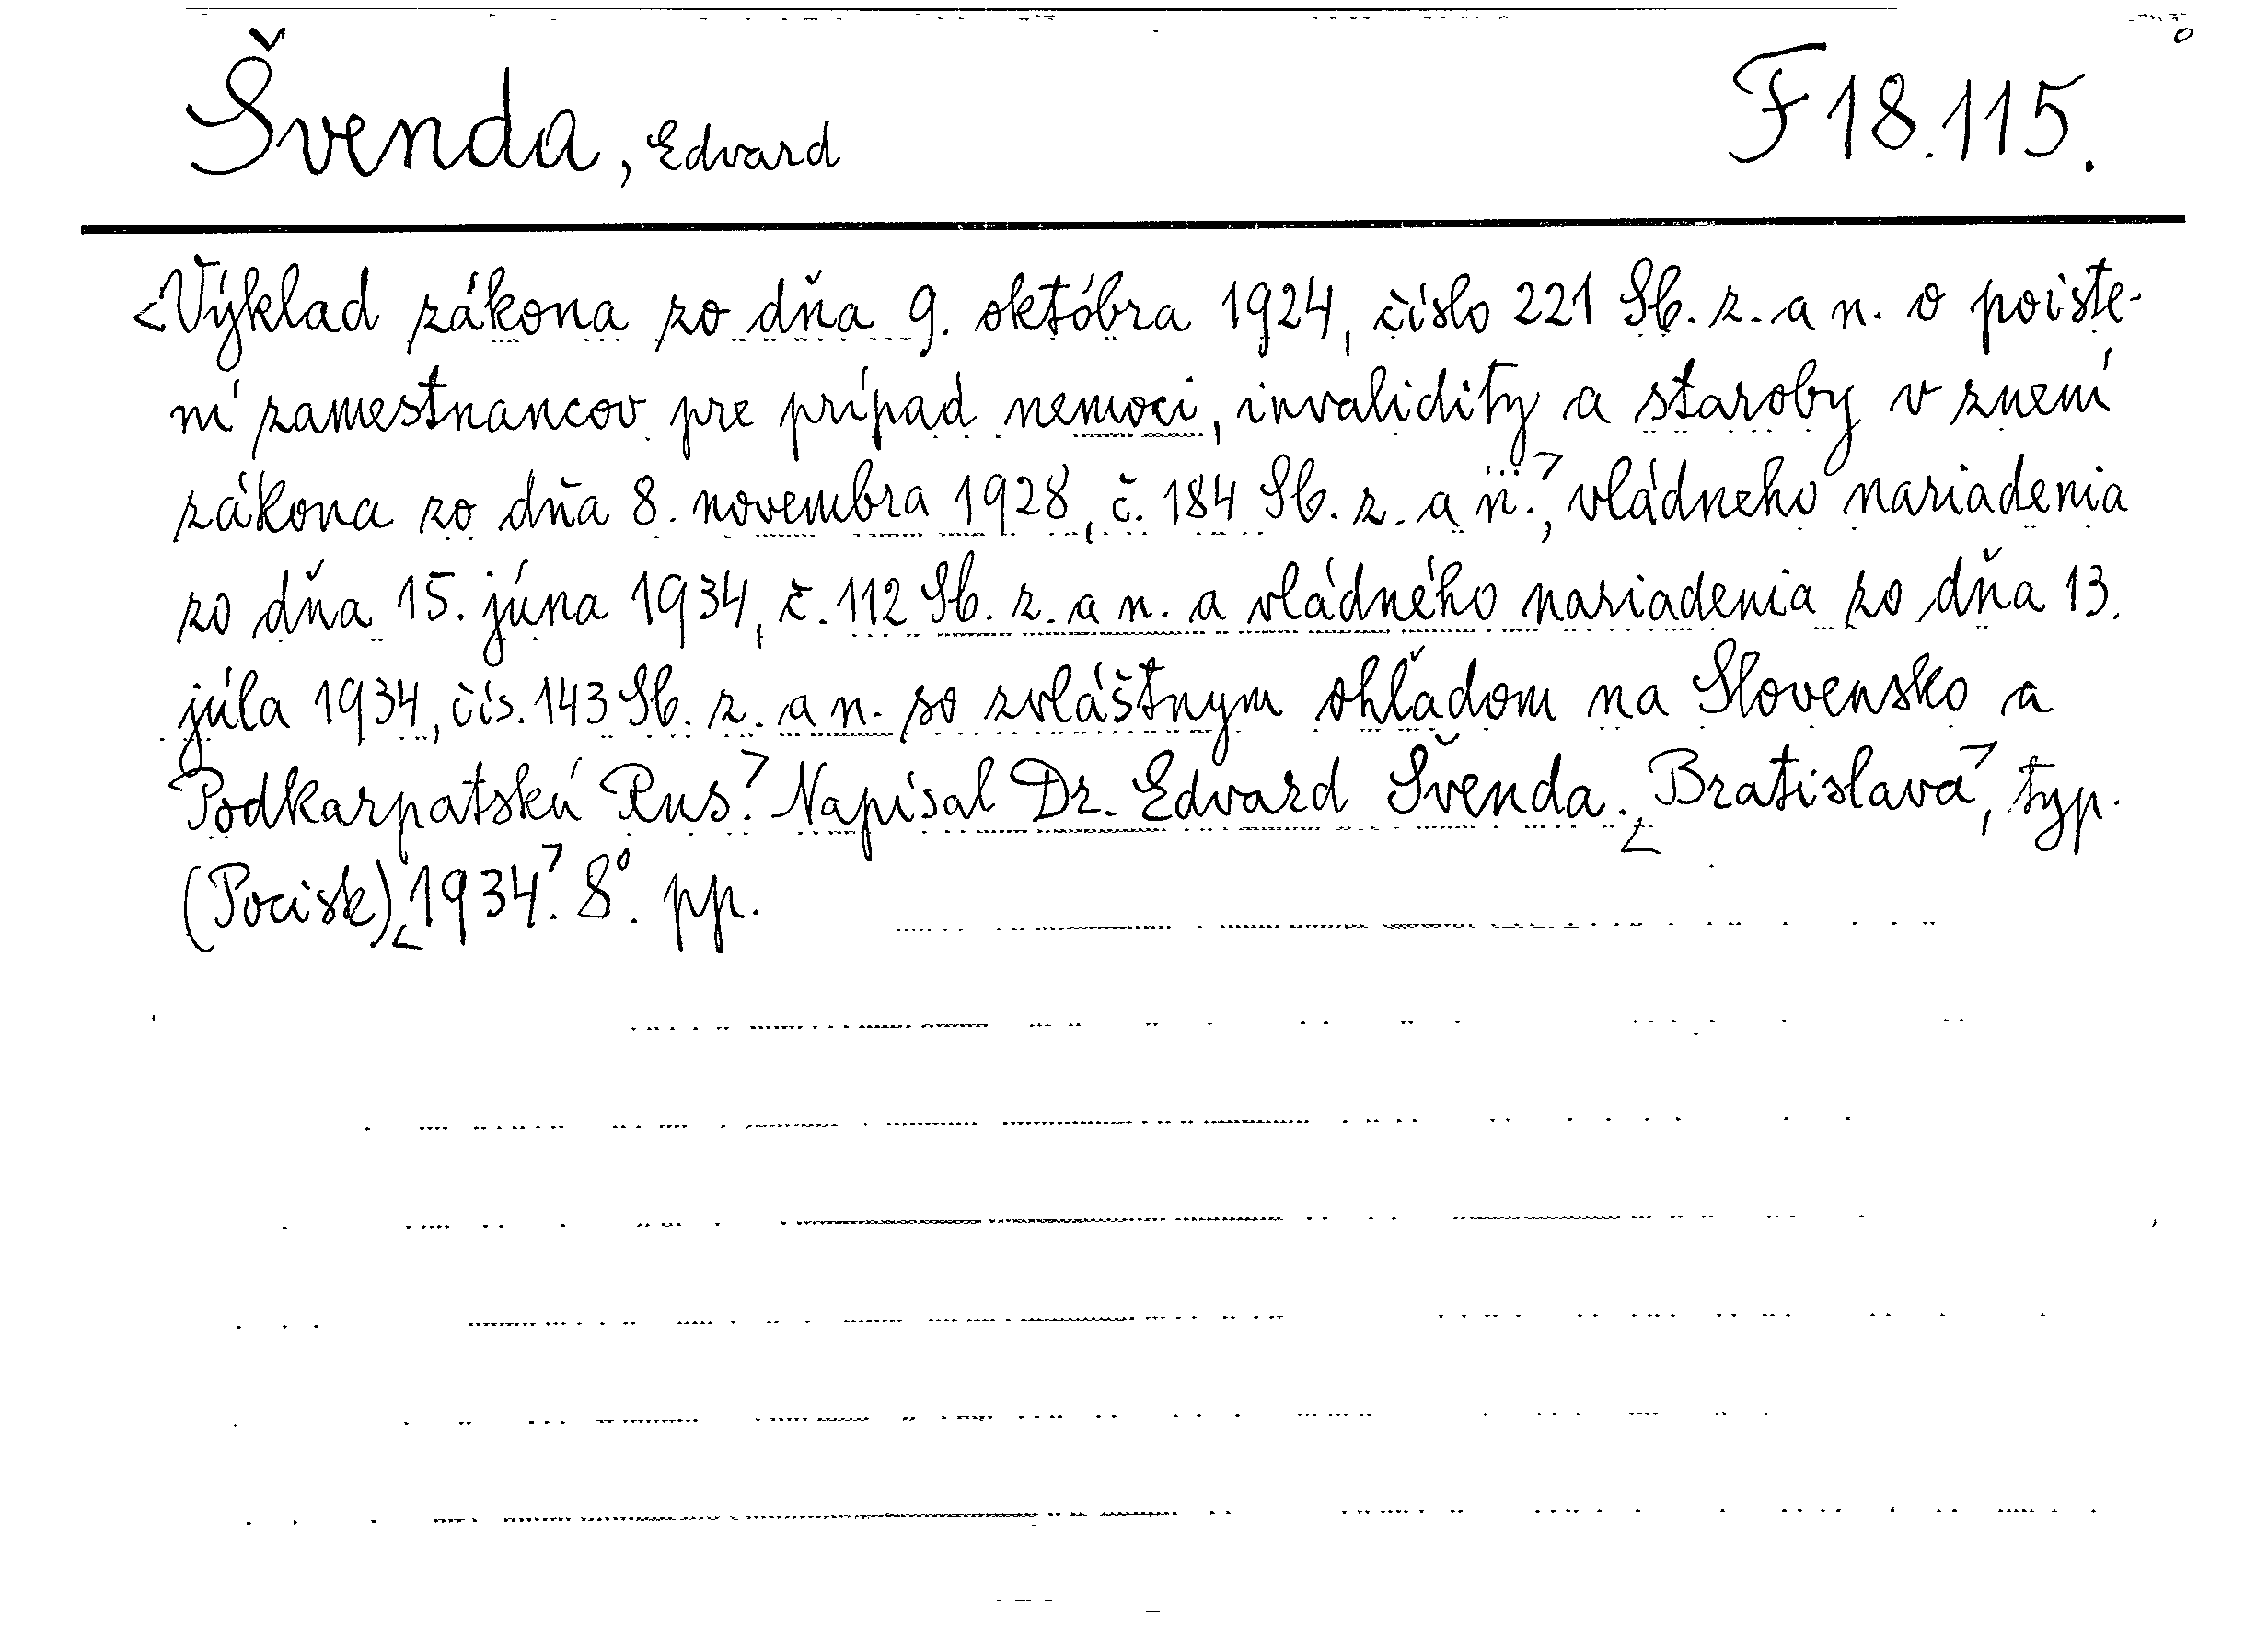 Švenda, Edvard
F 18.115.
<Výklad zákona zo dňa 9. októbra 1924, číslo 221 Sb. z. a n. o poiste-
ní zamestnancov pre prípad nemoci, invalidity a staroby v znení
zákona zo dňa 8. novembra 1928, č. 184 Sb. z. a n. ...>, vládneho nariadenia
zo dňa 15. júna 1934, č. 112 Sb. z. a n. a vládného nariadenia zo dňa 13.
júla 1934, čís. 143 Sb. z. a n. so zvláštnym ohľadom na Slovensko a
Podkarpatskú Rus.> Napísal Dr. Edvard Švenda. <Bratislava>, typ.
(Pocisk) <1934>. 8°. pp.